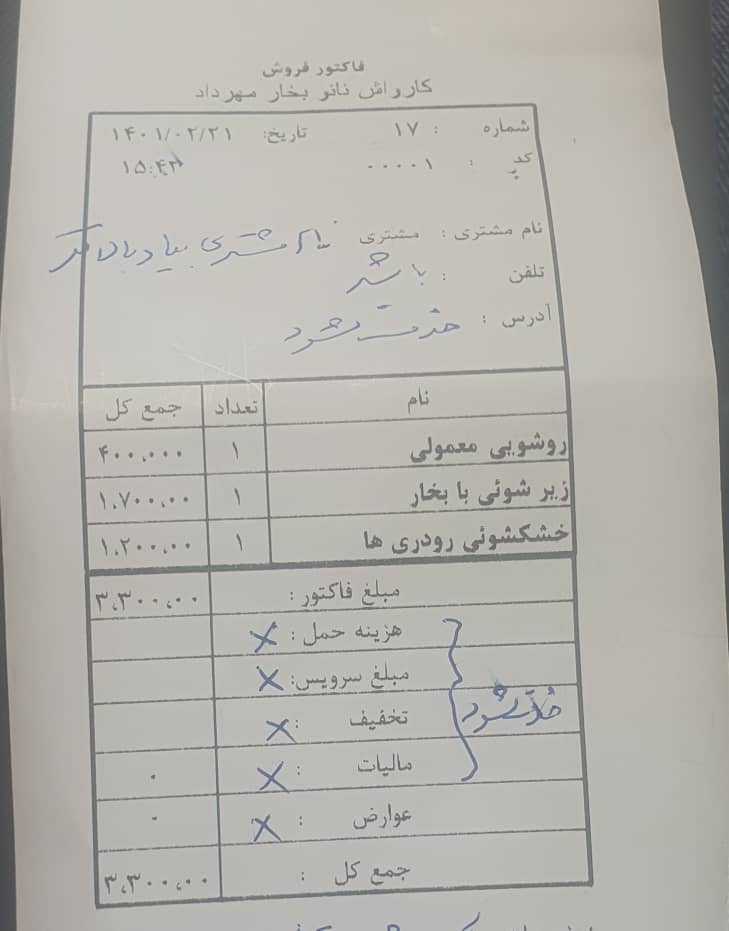 فاکتور فروش
کارواش نانو بخار مهرداد
شماره : ۱۷ تاریخ: ۱۴۰۱/۰۲/۲۱
کد : ۰۰۰۰۱ ۱۵:۴۳
نام مشتری : مشتری نام مشتری بیاد بالا
تلفن : باشد
آدرس : حذف شود
نام تعداد جمع کل
روشویی معمولی ۱ ۴۰۰،۰۰۰
زیر شوئی با بخار ۱ ۱،۷۰۰،۰۰۰
خشکشوئی رودری ها ۱ ۱،۲۰۰،۰۰۰
مبلغ فاکتور : ۳،۳۰۰،۰۰۰
هزینه حمل : X
مبلغ سرویس: X
تخفیف : X
حذف شود
مالیات : X ۰
عوارض : X ۰
جمع کل : ۳،۳۰۰،۰۰۰